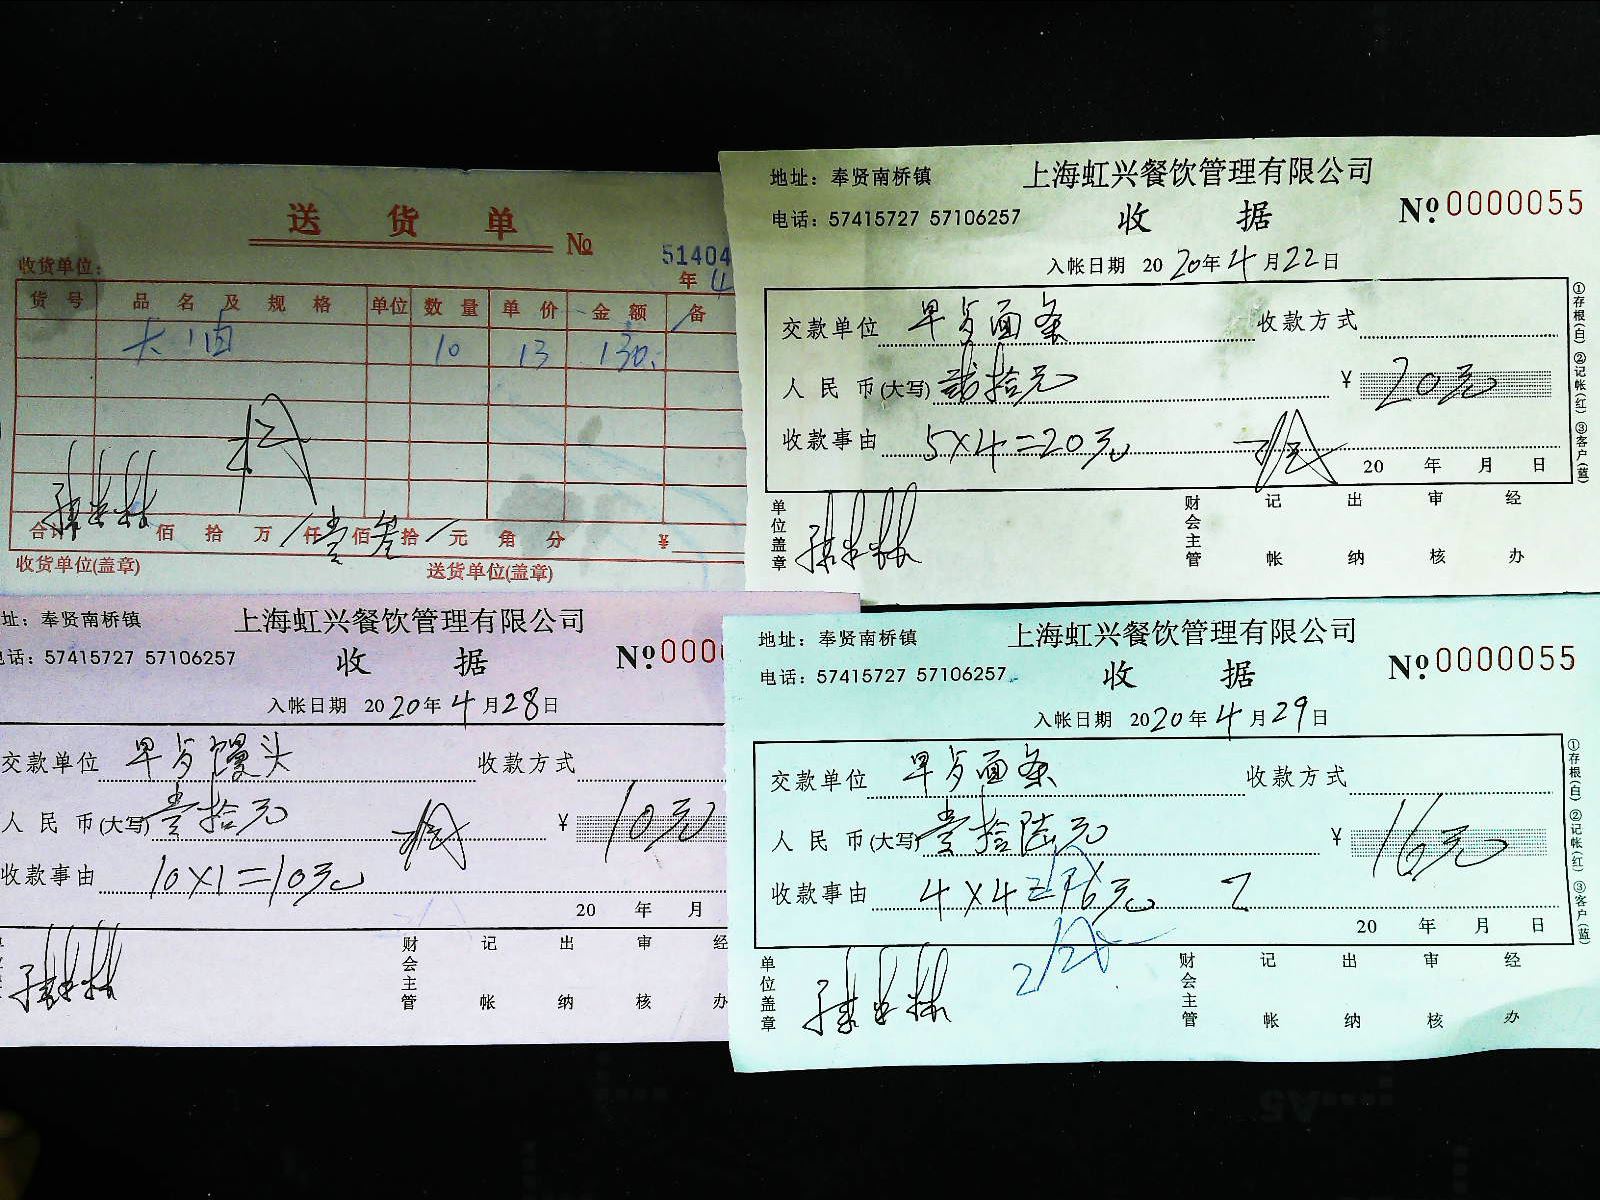 送 货 单 №
51404
收货单位: 年 4
货 号 品 名 及 规 格 单位 数 量 单 价 金 额 备
10 13 130.
合计 佰 拾 万 仟 壹 佰 叁 拾 元 角 分 ¥
收货单位(盖章) 送货单位(盖章)
地址: 奉贤南桥镇 上海虹兴餐饮管理有限公司
电话: 57415727 57106257 收 据 №0000055
入帐日期 2020年4月22日
交款单位 早点面条 收款方式
人 民 币(大写) 贰拾元 ¥ 20元
收款事由 5×4=20元
20 年 月 日
①存根(白) ②记帐(红) ③客户(蓝)
单位盖章 财会主管 记帐 出纳 审核 经办
址: 奉贤南桥镇 上海虹兴餐饮管理有限公司
电话: 57415727 57106257 收 据 №000
入帐日期 2020年4月28日
交款单位 早点馒头 收款方式
人 民 币(大写) 壹拾元 ¥ 10元
收款事由 10×1=10元
20 年 月
财会主管 记帐 出纳 审核 经办
地址: 奉贤南桥镇 上海虹兴餐饮管理有限公司
电话: 57415727 57106257 收 据 №0000055
入帐日期 2020年4月29日
交款单位 早点面条 收款方式
人 民 币(大写) 壹拾陆元 ¥ 16元
收款事由 4×4=16元
20 年 月 日
①存根(白) ②记帐(红) ③客户(蓝)
单位盖章 财会主管 记帐 出纳 审核 经办